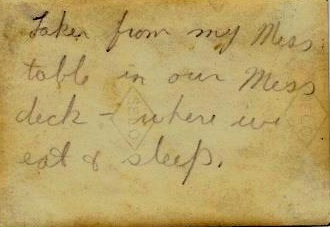 Taken from my Mess
table in our Mess
deck - where we
eat & sleep.